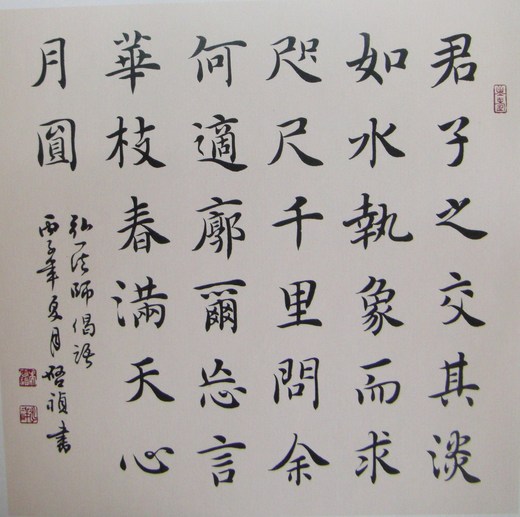 君子之交其淡
如水執象而求
咫尺千里問余
何適廓爾忘言
華枝春滿天心
月圓
弘一法師偈語
丙子年夏月悟禎書